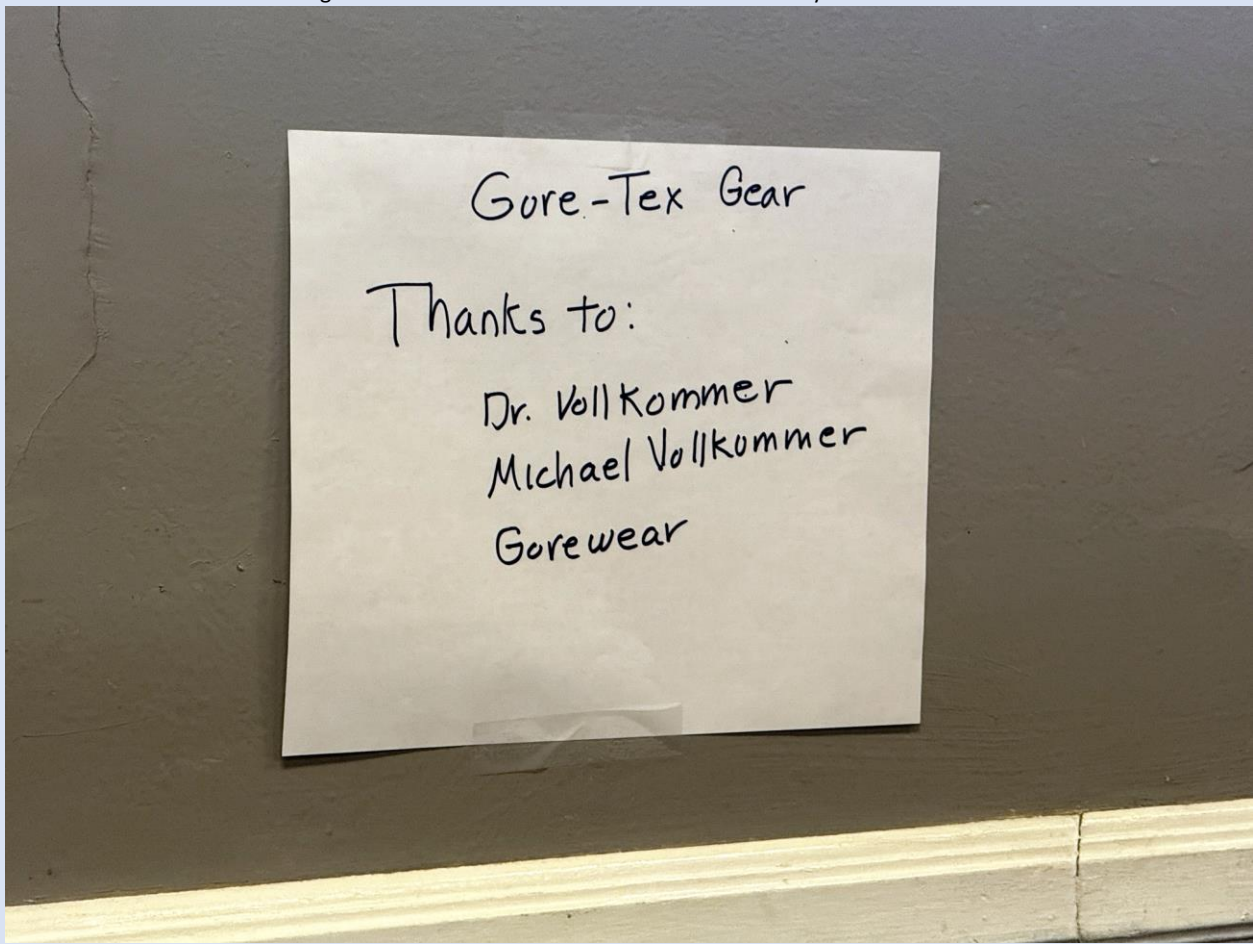 Gore-Tex Gear
Thanks to:
Dr. Vollkommer
Michael Vollkommer
Gorewear